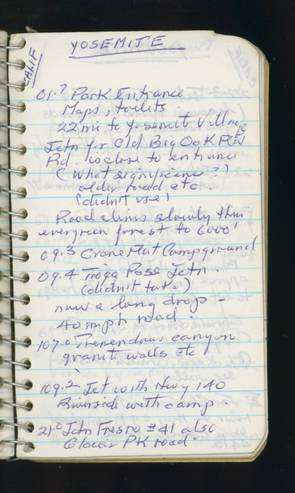 CALIF
YOSEMITE
01.7 Park Entrance
Maps, toilits.
22 mi to Yosemite Village
Jctn for Old Big Oak Flat
Rd. is close to entrance
(What significance?)
older road etc
(didn't use)
Road climbs slowly thru
evergreen forrest to 6000'
09.3 Crane Flat Campground
09.4 Tioga Pass Jctn.
(didn't take)
now a long drop -
40 mph road.
107.0 Tremendous canyon
granite walls etc
109.2 Jct with Hwy 140
Riverside with camp.
21.0 Jctn Fresno #41 also
Glacier Pk road.